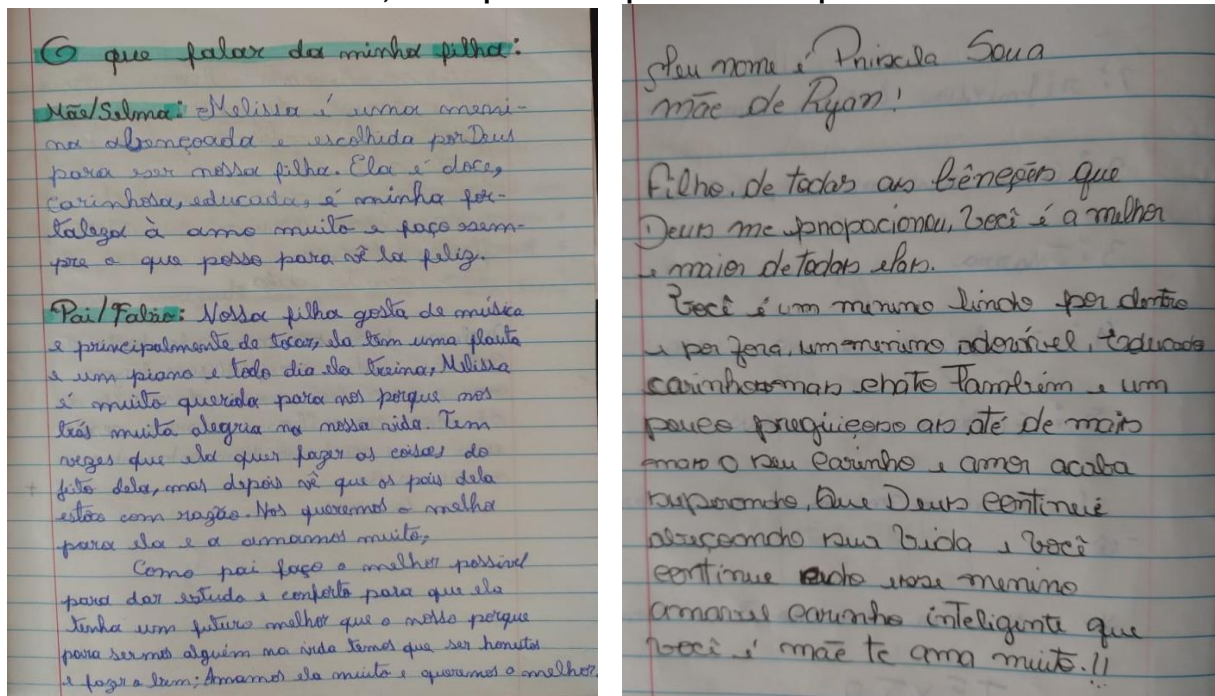 O que falar da minha filha:
Mãe/Selma: Melissa é uma meni-
na abençoada e escolhida por Deus
para ser nossa filha. Ela é doce,
carinhosa, educada, é minha for-
taleza à amo muito e faço sem-
pre o que posso para vê la feliz.
Pai/Fabio: Nossa filha gosta de música
e principalmente de tocar, ela tem uma flauta
e um piano e todo dia ela treina, Melissa
é muito querida para nos porque nos
trás muita alegria na nossa vida. Tem
vezes que ela quer fazer as coisas do
jeito dela, mas depois vê que os pais dela
estão com razão. Nos queremos o melhor
para ela e a amamos muito,
Como pai faço o melhor possivel
para dar estudo e conforto para que ela
tenha um futuro melhor que o nosso porque
para sermos alguém na vida temos que ser honestos
e fazer o bem; Amamos ela muito e queremos o melhor.
Meu nome é Priscila Sou a
mãe de Ryan!
Filho. de todas as bênçãos que
Deus me propocionou, Você é a melhor
e maior de todas elas.
Você é um menino lindo por dentro
e por fora, um menino adorável, educado
carinhoso mas chato também e um
pouco preguiçoso as até de mais
mas o seu carinho e amor acaba
superando, Que Deus continue
abeçoando sua vida e você
continue sendo esse menino
amavel carinho inteligente que
você é mãe te ama muito.!!